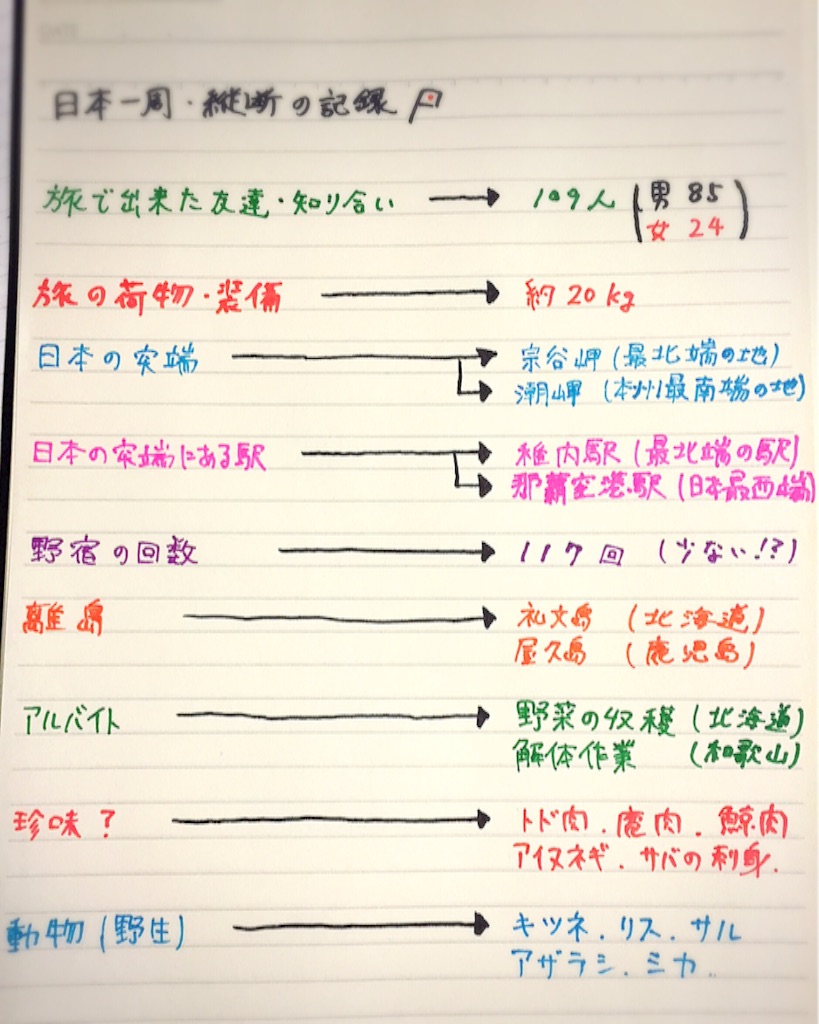 日本一周・縦断の記録
旅で出来た友達・知り合い → 109人 (男 85
女 24)
旅の荷物・装備 → 約20kg
日本の突端 → 宗谷岬 (最北端の地)
潮岬 (本州最南端の地)
日本の突端にある駅 → 稚内駅 (最北端の駅)
那覇空港駅 (日本最西端)
野宿の回数 → 117回 (少ない!?)
離島 → 礼文島 (北海道)
屋久島 (鹿児島)
アルバイト → 野菜の収穫 (北海道)
解体作業 (和歌山)
珍味? → トド肉.鹿肉.鯨肉
アイヌネギ.サバの刺身.
動物 (野生) → キツネ.リス.サル
アザラシ.ミカ..